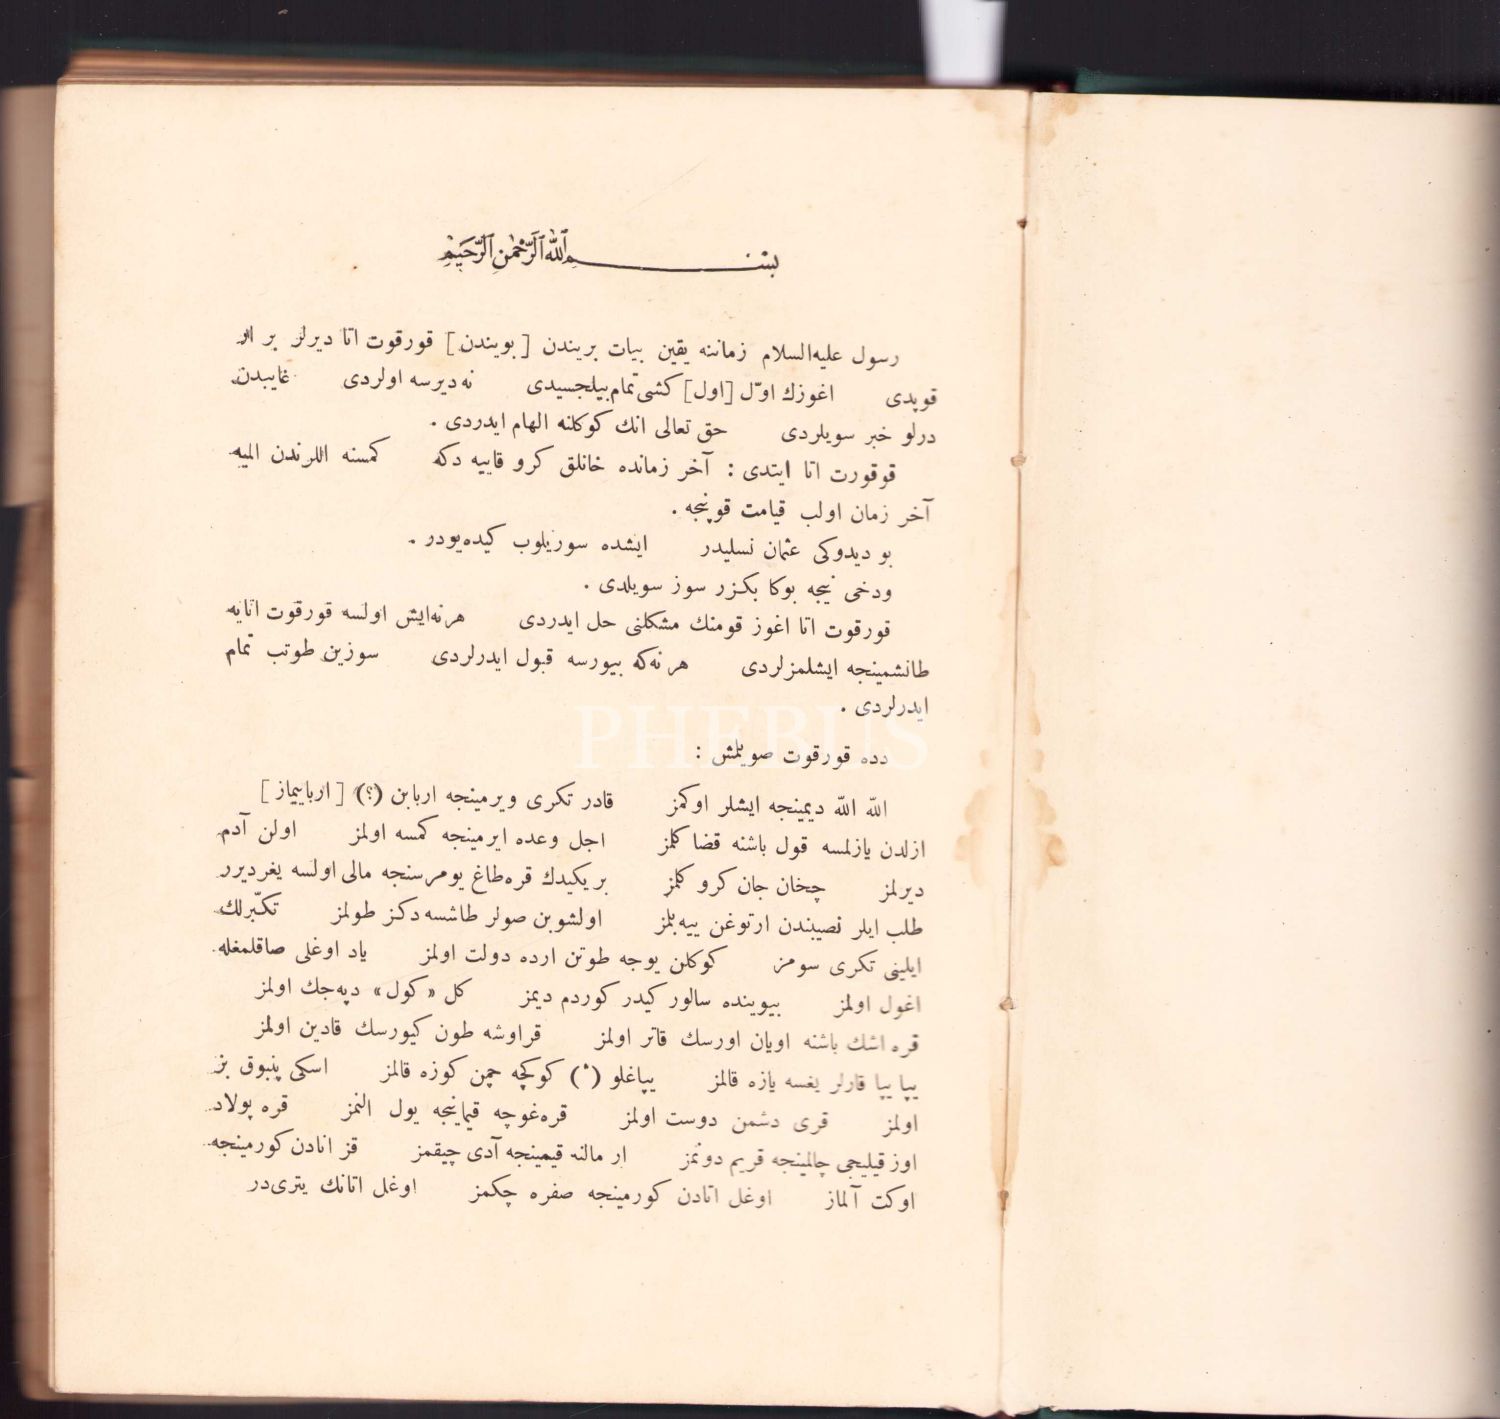 بسم الله الرحمن الرحيم
رسول عليه‌السلام زماننه يقين بيات بريندن [بويندن] قورقوت اتا ديرلر بر ار
قوپدی اغوزك اوّل [اول] كشی تمام بيلجسيدی نه ديرسه اولردی غايبدن
درلو خبر سويلردی حق تعالی انك كوكلنه الهام ايدردی .
قوقورت اتا ايتدی : آخر زمانده خانلق كرو قاييه دكه كمسنه اللرندن الميه
آخر زمان اولب قيامت قوپنجه .
بو ديدوكی عثمان نسليدر ايشده سوريلوب كيده‌يودر .
ودخی نيجه بوكا بكزر سوز سويلدی .
قورقوت اتا اغوز قومنك مشكلنی حل ايدردی هرنه‌ايش اولسه قورقوت اتايه
طانشمينجه ايشلمزلردی هر نه‌كه بيورسه قبول ايدرلردی سوزين طوتب تمام
ايدرلردی .
PHEBUS
دده قورقوت صويلمش :
الله الله ديمينجه ايشلر اوكمز قادر تكری ويرمينجه اربابن (؟) [اربابيماز]
ازلدن يازلمسه قول باشنه قضا كلمز اجل وعده ايرمينجه كمسه اولمز اولن آدم
ديرلمز چخان جان كرو كلمز بر يكيدك قره‌طاغ يومرسنجه مالی اولسه يغر ديرر
طلب ايلر نصيبندن ارتوغن ييه‌بلمز اولشوبن صولر طاشسه دكز طولمز تكبّرلك
ايلينی تكری سومز كوكلن يوجه طوتن ارده دولت اولمز ياد اوغلی صاقلمغله
اغول اولمز بيوينده سالور كيدر كوردم ديمز كل «كول» دپه‌جك اولمز
قره اشك باشنه اويان اورسك قاتر اولمز قراوشه طون كيورسك قادين اولمز
يپا يپا قارلر يغسه يازه قالمز يپاغلو (٠) كوكچه چمن كوزه قالمز اسكی پنبوق بز
اولمز قری دشمن دوست اولمز قره‌غوچه قيماينجه يول النمز قره پولاد
اوز قيليجی چالمينجه قريم دونمز ار مالنه قيمينجه آدی چيقمز قز انادن كورمينجه
اوكت آلماز اوغل اتادن كورمينجه صفره چكمز اوغل اتانك يتری‌در